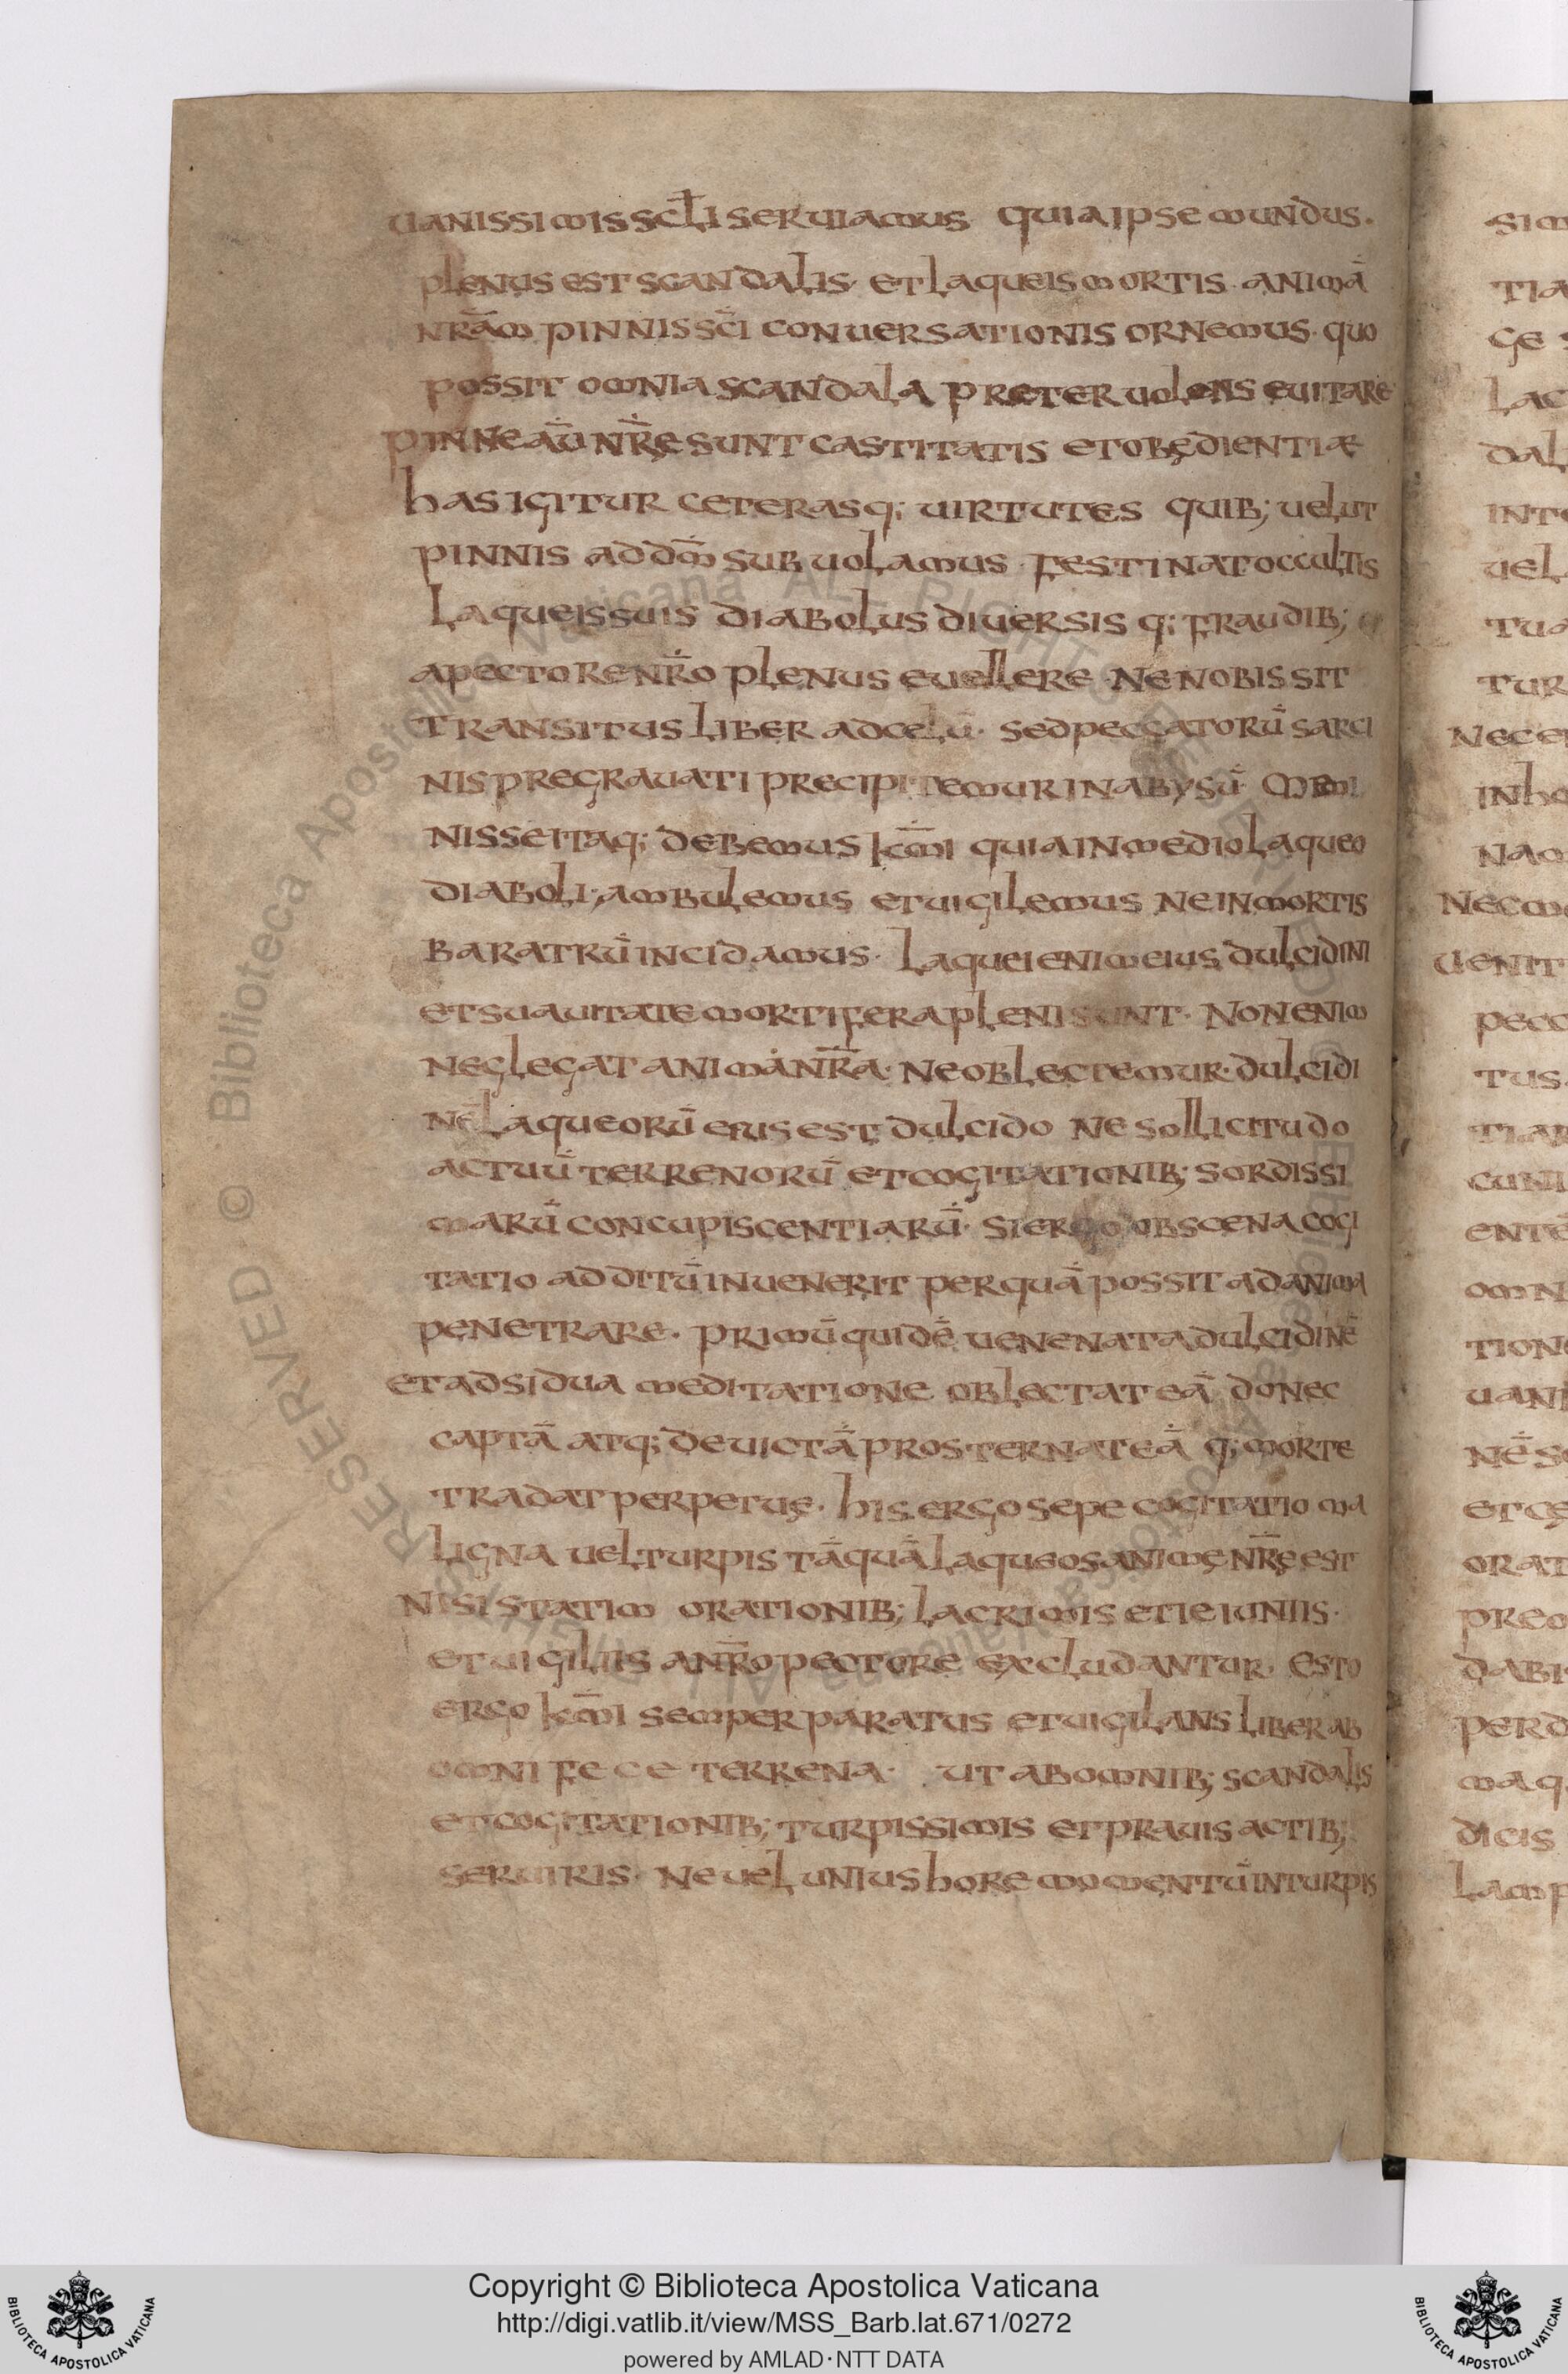 uanissimis scłi seruiamus quia ipse mundus.
plenus est scandalis· et laqueis mortis· animā
nrām pinnis scī conuersationis ornemus· quo
possit omnia scandala preter uolens euitare
pinne aū nrę̄ sunt castitatis et obędientiæ
has igitur ceteras q; uirtutes quib; uelut
pinnis ad dm̄ sub uolamus· festinat occultis
laqueis suis diabolus diuersis q; fraudib;
a pectore nr̄o plenus euellere· ne nobis sit
transitus liber ad celū· sed peccatorū sarci
nis pregrauati precipitemur in abysū· Memi
nisse itaq; debemus kmī quia in medio laqueo
diaboli; ambulemus et uigilemus ne in mortis
baratrū incidamus· laquei enim eius dulcidini
et suauitate mortifera pleni sunt· Non enim
neglegat animā nr̄a· ne oblectemur· dulcidi
nē laqueorū eius est dulcido ne sollicitudo
actuū terrenorū et cogitationib; sordissi
marū concupiscentiarū· si ergo obscena cogi
tatio additū inuenerit per quā possit ad anima
penetrare· primū quidē uenenata dulcidinē
et adsidua meditatione oblectat eā donec
captā atq; deuictā prosternat eā q; morte
tradat perpetuę· his ergo sepe cogitatio ma
ligna uel turpis tāquā laqueos animę nr̄ę est
Nisi statim orationib; lacrimis et ieiuniis·
et uigiliis a nr̄o pectore excludantur· Esto
ergo kmī semper paratus et uigilans liber ab
omni fece terrena· ut ab omnib; scandalis
et cogitationib; turpissimis et prauis actib;
seruiris· Ne uel unius hore momentū in turpis
Copyright © Biblioteca Apostolica Vaticana
http://digi.vatlib.it/view/MSS_Barb.lat.671/0272
powered by AMLAD·NTT DATA